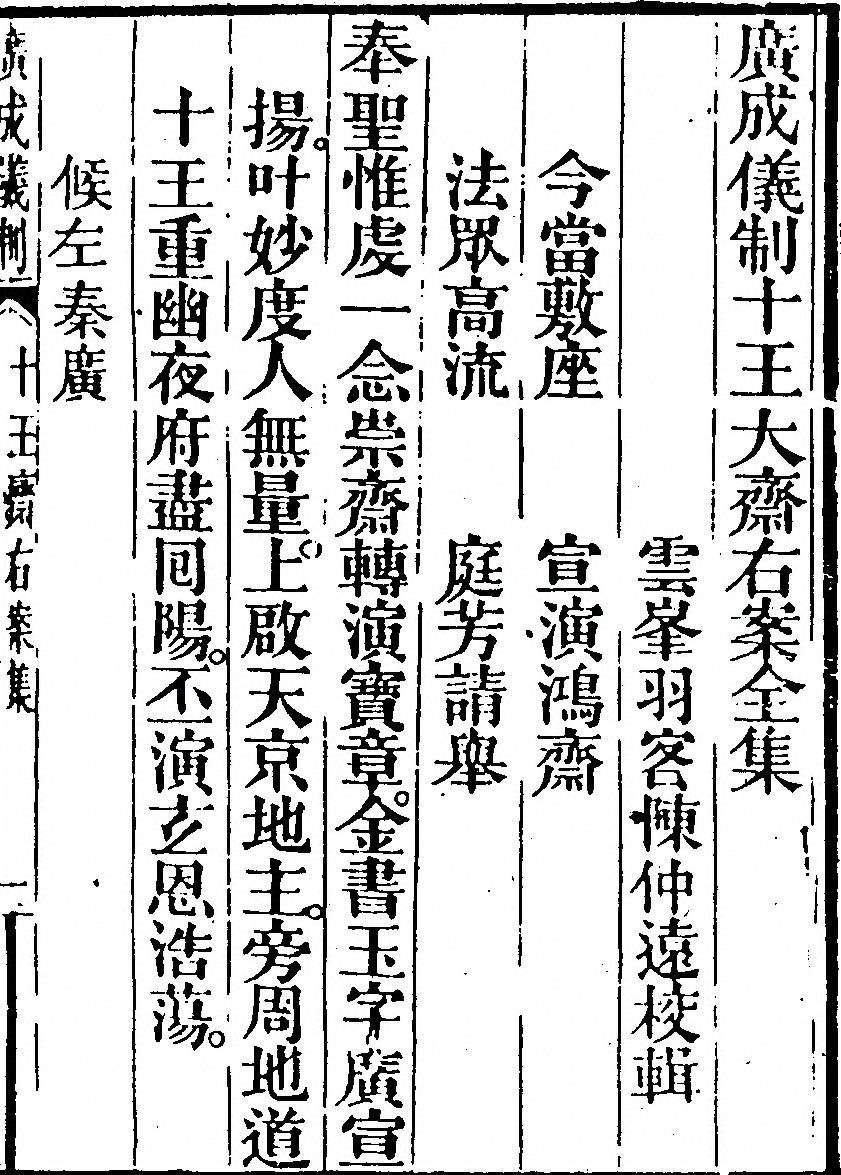 廣成儀制十王大齋右案全集
雲峯羽客陳仲遠校輯
今當敷座 宣演鴻齋
法眾高流 庭芳請舉
奉聖惟虔一念崇齋轉演寶章。金書玉字廣宣
揚。叶妙度人無量。上啟天京地主。旁周地道
十王重幽夜府盡囘陽。丕演玄恩浩蕩。
候左秦廣
廣成儀制 十王齋右案集 一